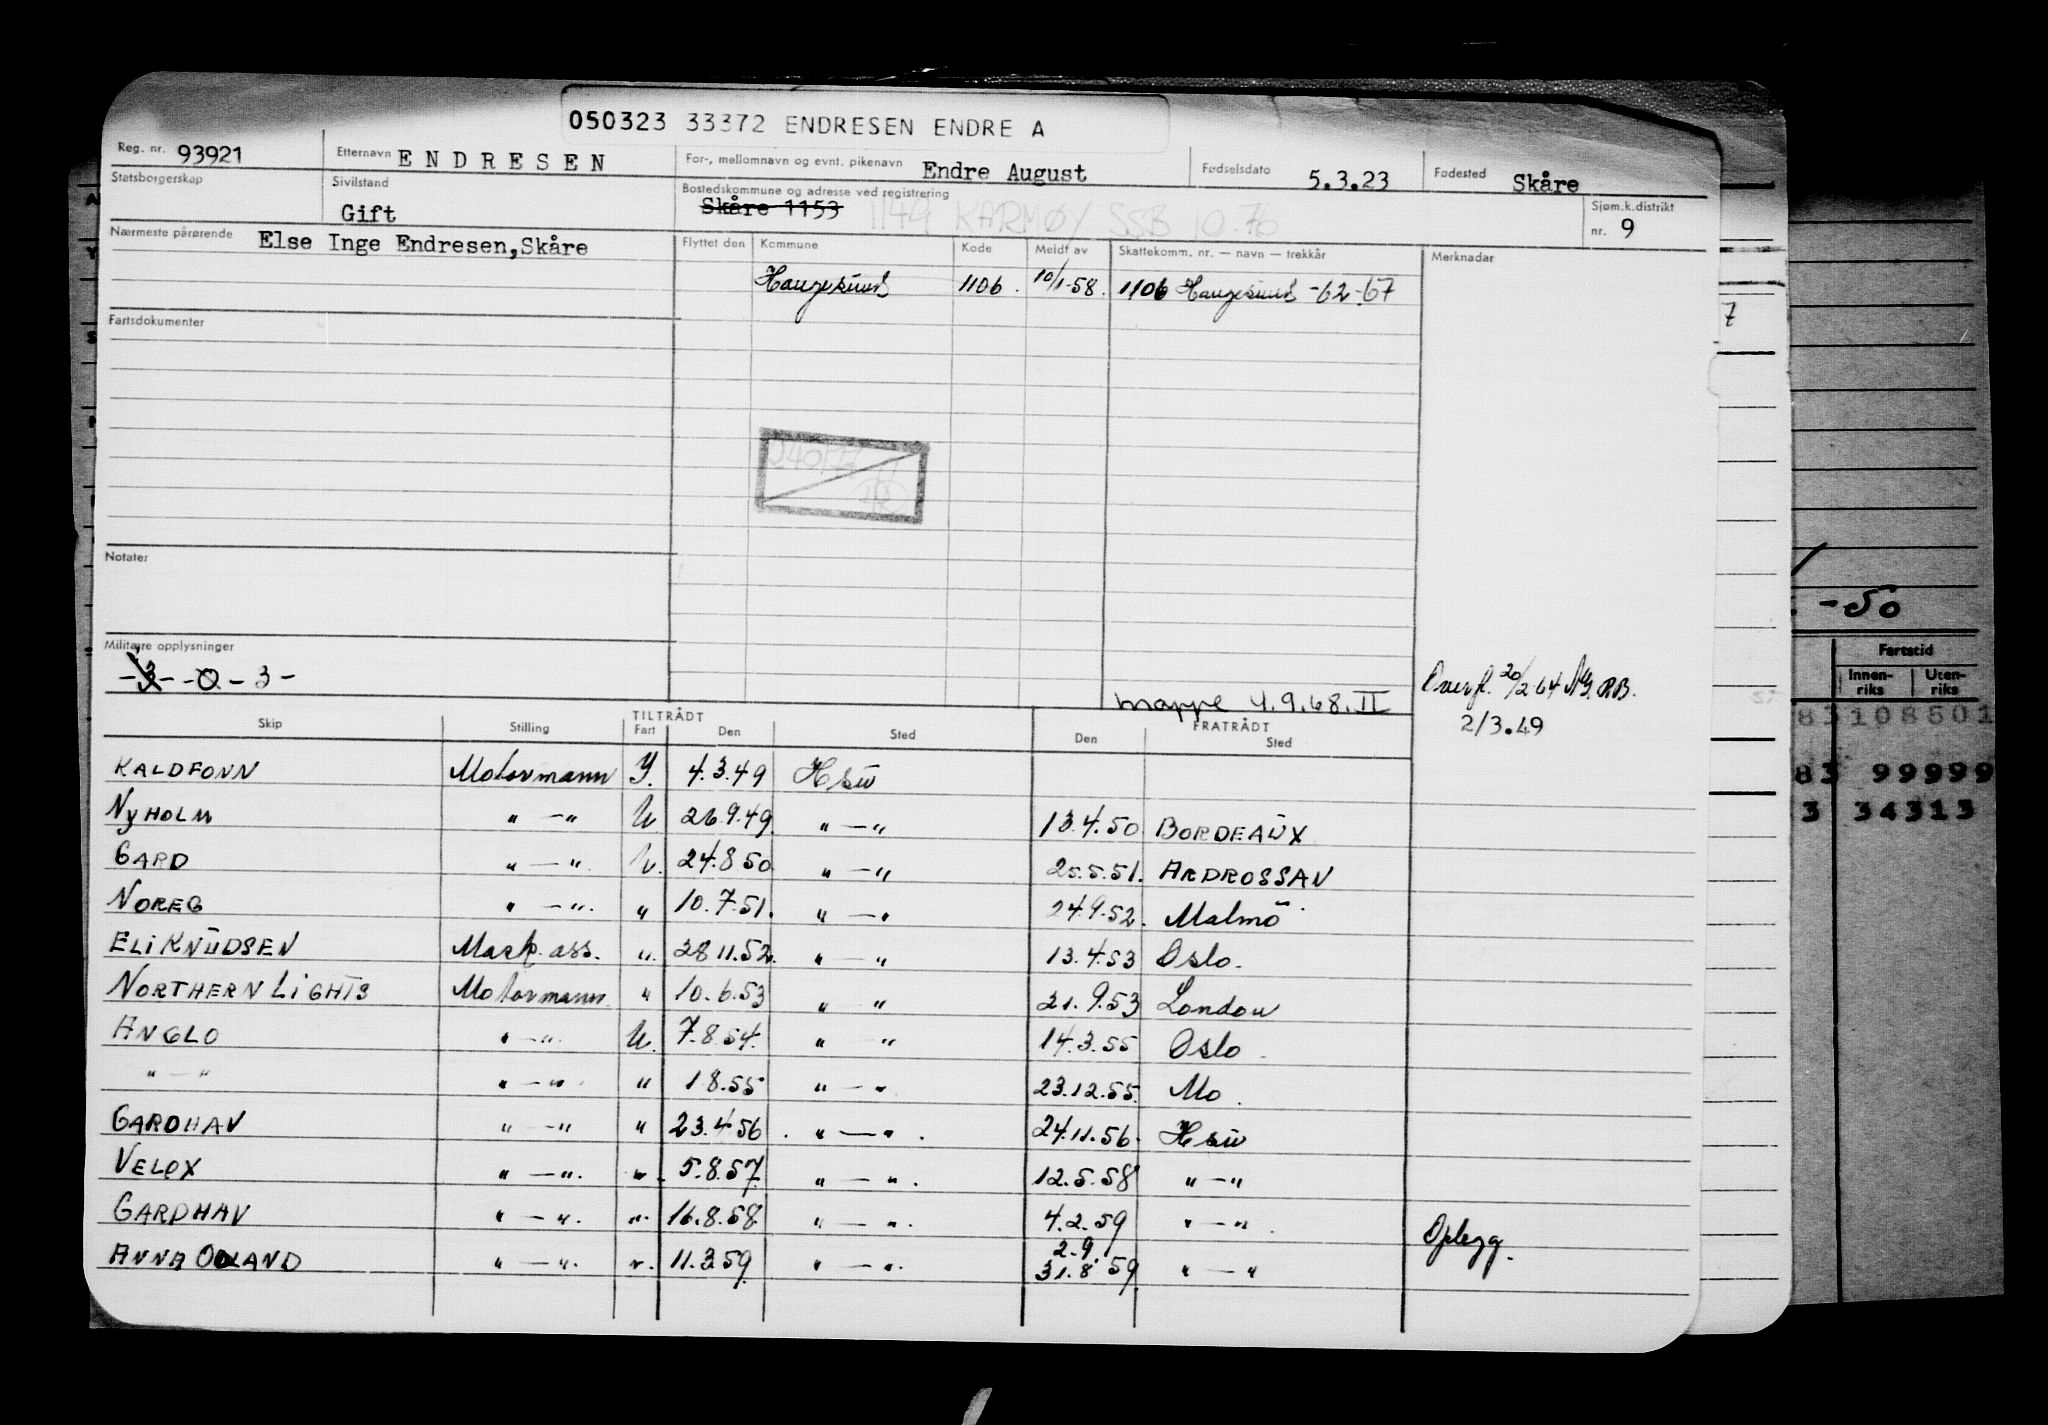 050323 33372 ENDRESEN ENDRE A
Reg. nr. 93921 Etternavn ENDRESEN For-, mellomnavn og evnt. pikenavn Endre August Fødselsdato 5.3.23 Fødested Skåre
Statsborgerskap Sivilstand Gift Bostedskommune og adresse ved registrering Skåre 1153 1149 KARMØY SSB 10.76 Sjøm.k.distrikt nr. 9
Nærmeste pårørende Else Inge Endresen,Skåre Flyttet den Kommune Kode Meldt av Skattekomm. nr. — navn — trekkår Merknader
Haugesund 1106 10/1-58. 1106 Haugesund -62-67
7
Fartsdokumenter
Notater
-50
Militære opplysninger
-3- -0-3-
Overfl. 20/2 64 RB.
mappe 4.9.68. II
2/3.49
Fartstid
Innen-riks Uten-riks
83 108501
83 99999
3 34313
TILTRÅDT FRATRÅDT
Skip Stilling Fart Den Sted Den Sted
KALDFONN Motormann Y. 4.3.49 Hsu
NYHOLM " — " U 26.9.49 " — " 13.4.50 BORDEAUX
GARD " — " U. 24.8 50 " — " 25.5.51. ARDROSSAN
NOREG " — " " 10.7.51. " — " 24.9.52. Malmö
ELI KNUDSEN Mask. ass. " 28 11.52. " — " 13.4.53 Oslo.
NORTHERN LIGHTS Motormann " 10.6.53 " — " 21.9.53 London
ANGLO " — " U. 7.8.54. " " 14.3.55 Oslo.
" — " " — " " 1 8.55 " — " 23.12.55. Mo.
GARDHAV " — " " 23.4 56 " — " 24.11.56. Hsu
VELOX " — " " 5.8.57. " — " 12.5.58 " — "
GARDHAV " — " " 16.8.58 " — " 4.2.59 " — " Oplegg.
ANNA ODLAND " — " " 11.3 59 " — " 2.9. 31.8 59 " — "